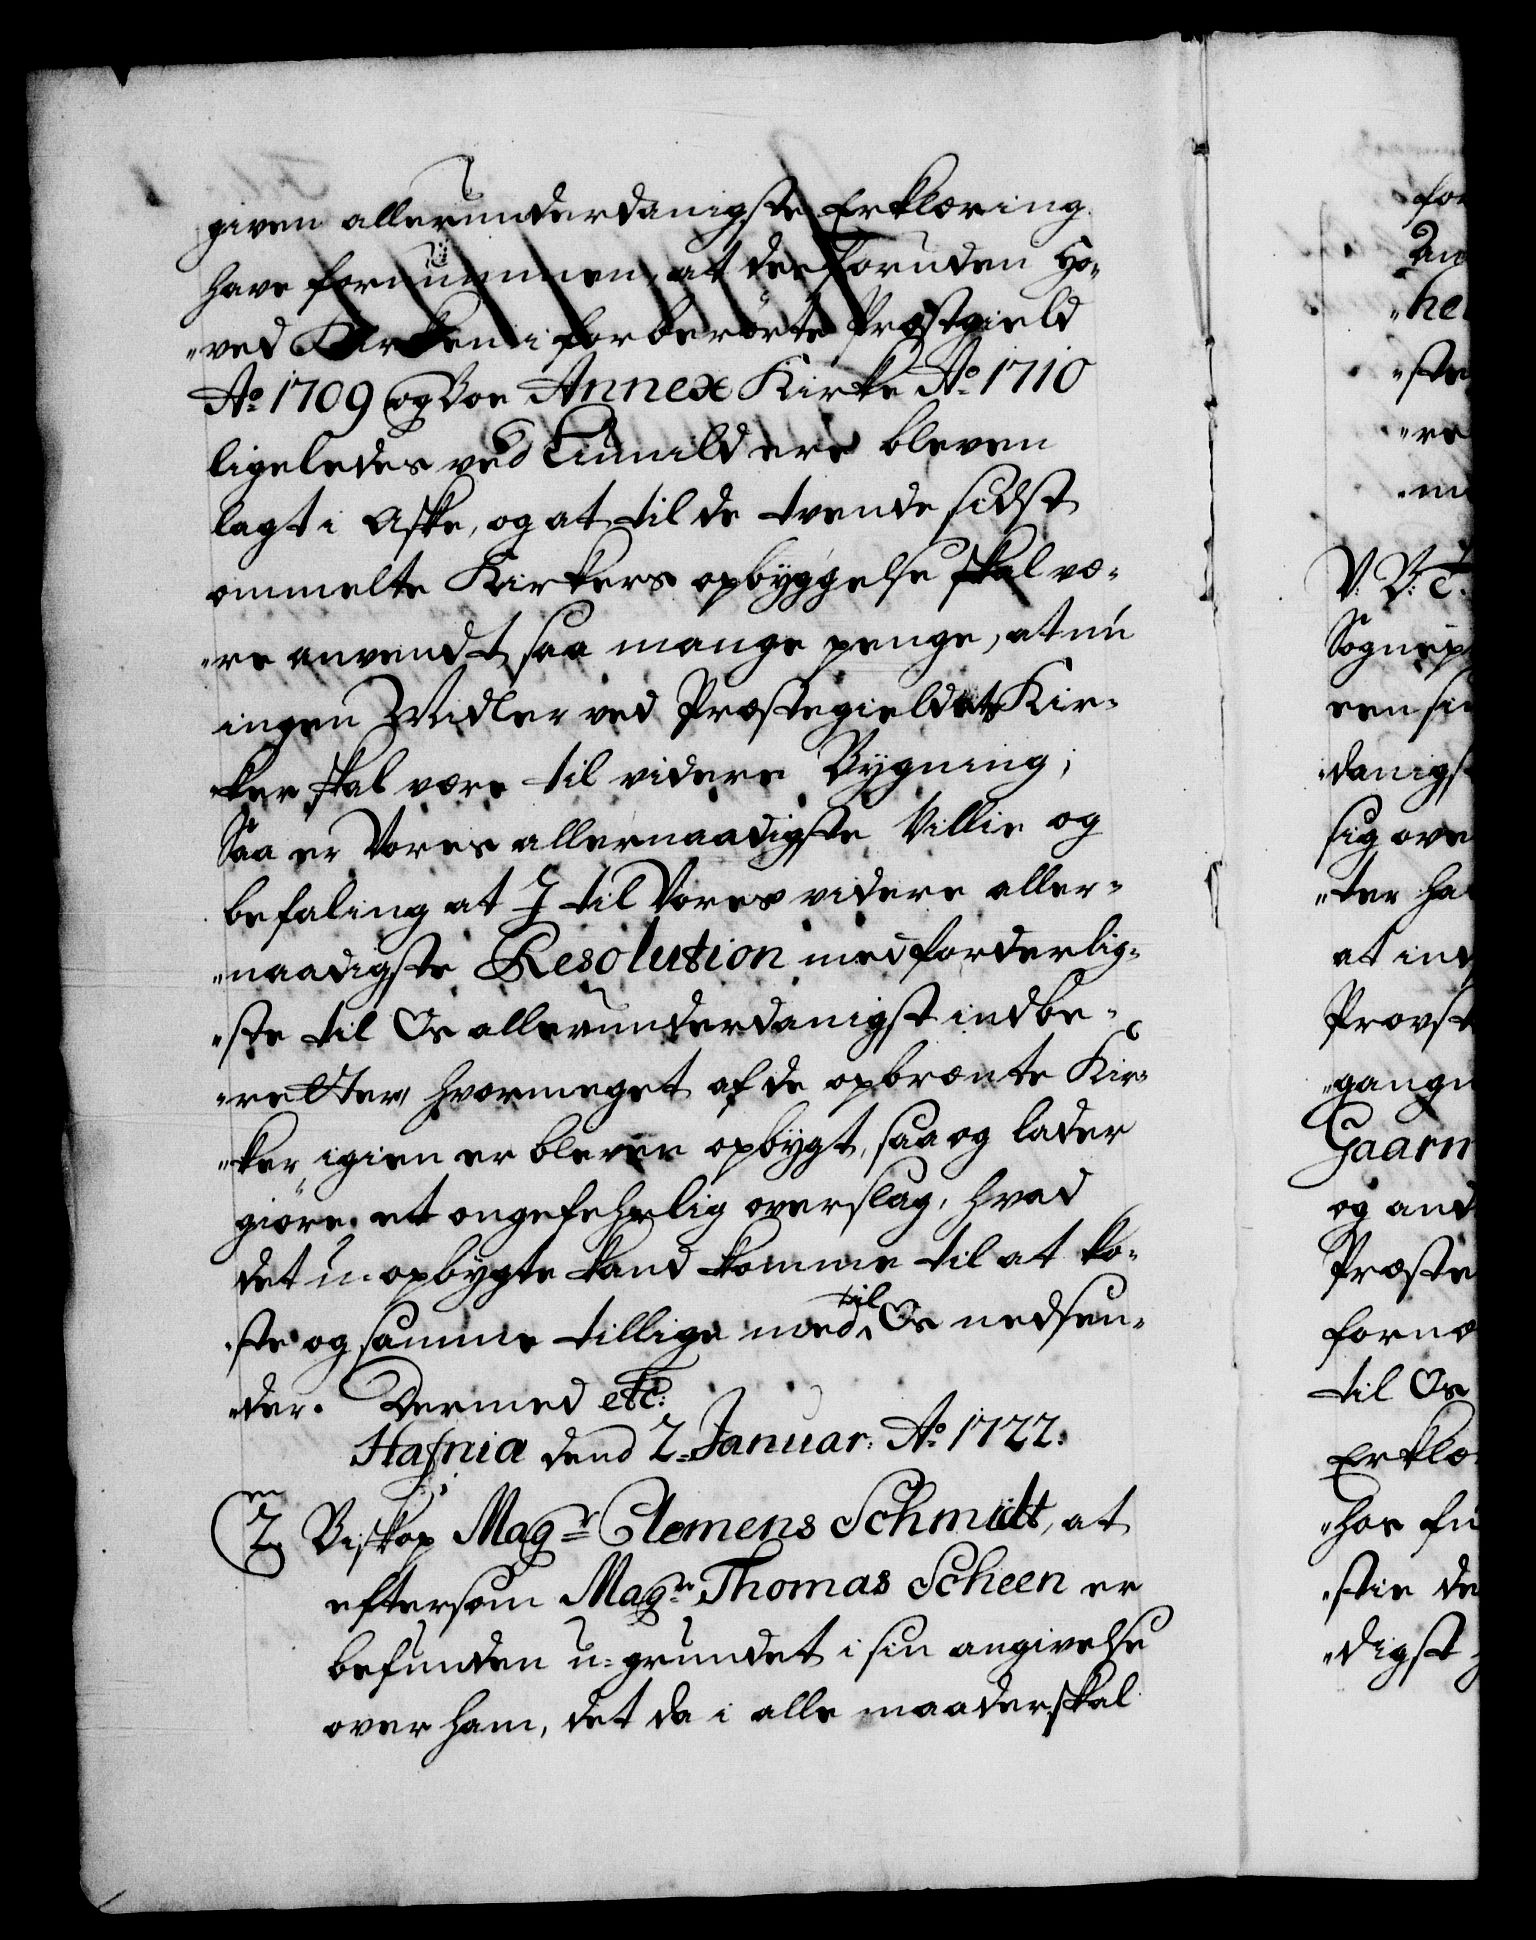 given allerunderdanigste Erklæring
have fornummen, at der foruden Ho-
"ved Kirken i forberørte Præstgield
Ao. 1709 og Boe Annex Kirke Ao. 1710
ligeledes ved Liunild ere bleven
lagt i Aske, og at til de tvende sidst
ommelte Kirkers opbyggelse skal væ-
"re anvendt saa mange penge, at nu
ingen Midler ved Præstegieldets Kir-
"ker skal være til videre Bygning;
Saa er Vores allernaadigste Villie og
befaling at I til Vores videre aller-
"naadigste Resolution med forderlig-
"ste til Os allerunderdanigst indbe-
"retter, hvormeget af de opbrænte Kir-
"ker igien er bleven opbygt, saa og lader
giøre et ongefehrlig overslag, hvad
det u-opbygte kand komme til at ko-
"ste og samme tillige med til Os nedsen-
"der. Dermed etc:
Hafnia dend 2. Januar: Ao. 1722.
2. Biskop Magr Clemens Schmidt, at
eftersom Magr. Thomas Scheen er
befunden u-grundet i sin angivelse
over ham, det da i alle maader skal
for
An
"hel
"ste
"re
V: V: C.
Sognep
een si
danigs
sig ove
"ter ha
at ind
Provst
"gangn
Gaarn
og and
Præste
fornæ
til Os
Erklæ
"hos fu
"stie de
"digst